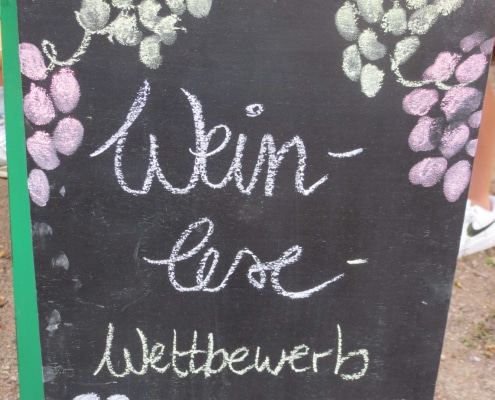 Wein-
lese-
Wettbewerb